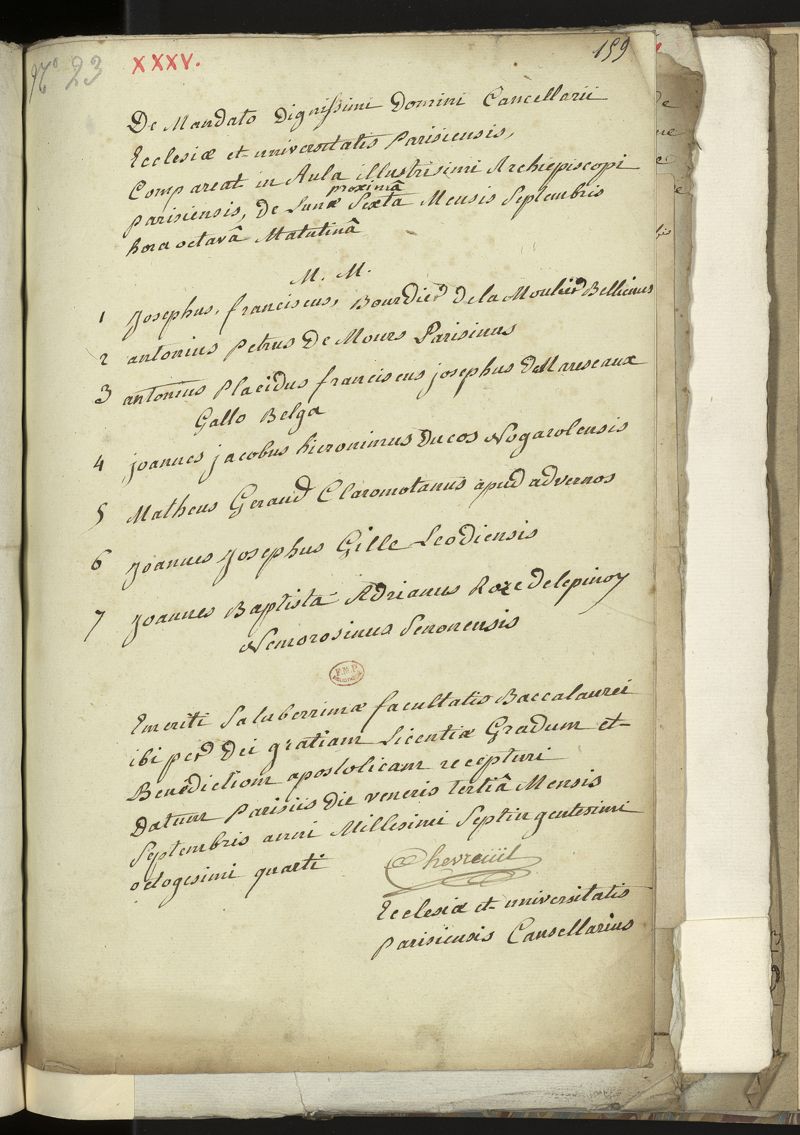 N.o 23
XXXV.
159
De Mandato Dignissimi Domini Cancellarii
Ecclesiæ et universitatis Parisiensis,
Compareat in Aula illustrisimi Archiepiscopi
proximâ
parisiensis, de Lunæ Sextâ Mensis Septembris
hora octavâ Matutinâ
M. M.
1 Josephus, franciscus, Bourdier de la Moulière Bellicnus
2 antonius petrus De Mours Parisinus
3 antonius Placidus franciscus josephus deMarescaux
Gallo Belga
4 joannes jacobus hieronimus Ducos Nogarolensis
5 Matheus Geraud Claromotanus apud advernos
6 Joannes Josephus Gille Leodiensis
7 Joannes Baptista Adrianus Roze delepinoy
Nemorosinus Senonensis
F.M.P.
Emeriti Saluberrimæ facultatis Baccalaurei
ibi per Dei gratiam Licentiæ Gradum et
Benedictiom apostolicam recepturi
Datum Parisiis die veneris tertiâ Mensis
Septembris anni Millesimi Septingentesimi
octogesimi quarti
Chevreüil
Ecclesiæ et universitatis
parisiensis Cansellarius